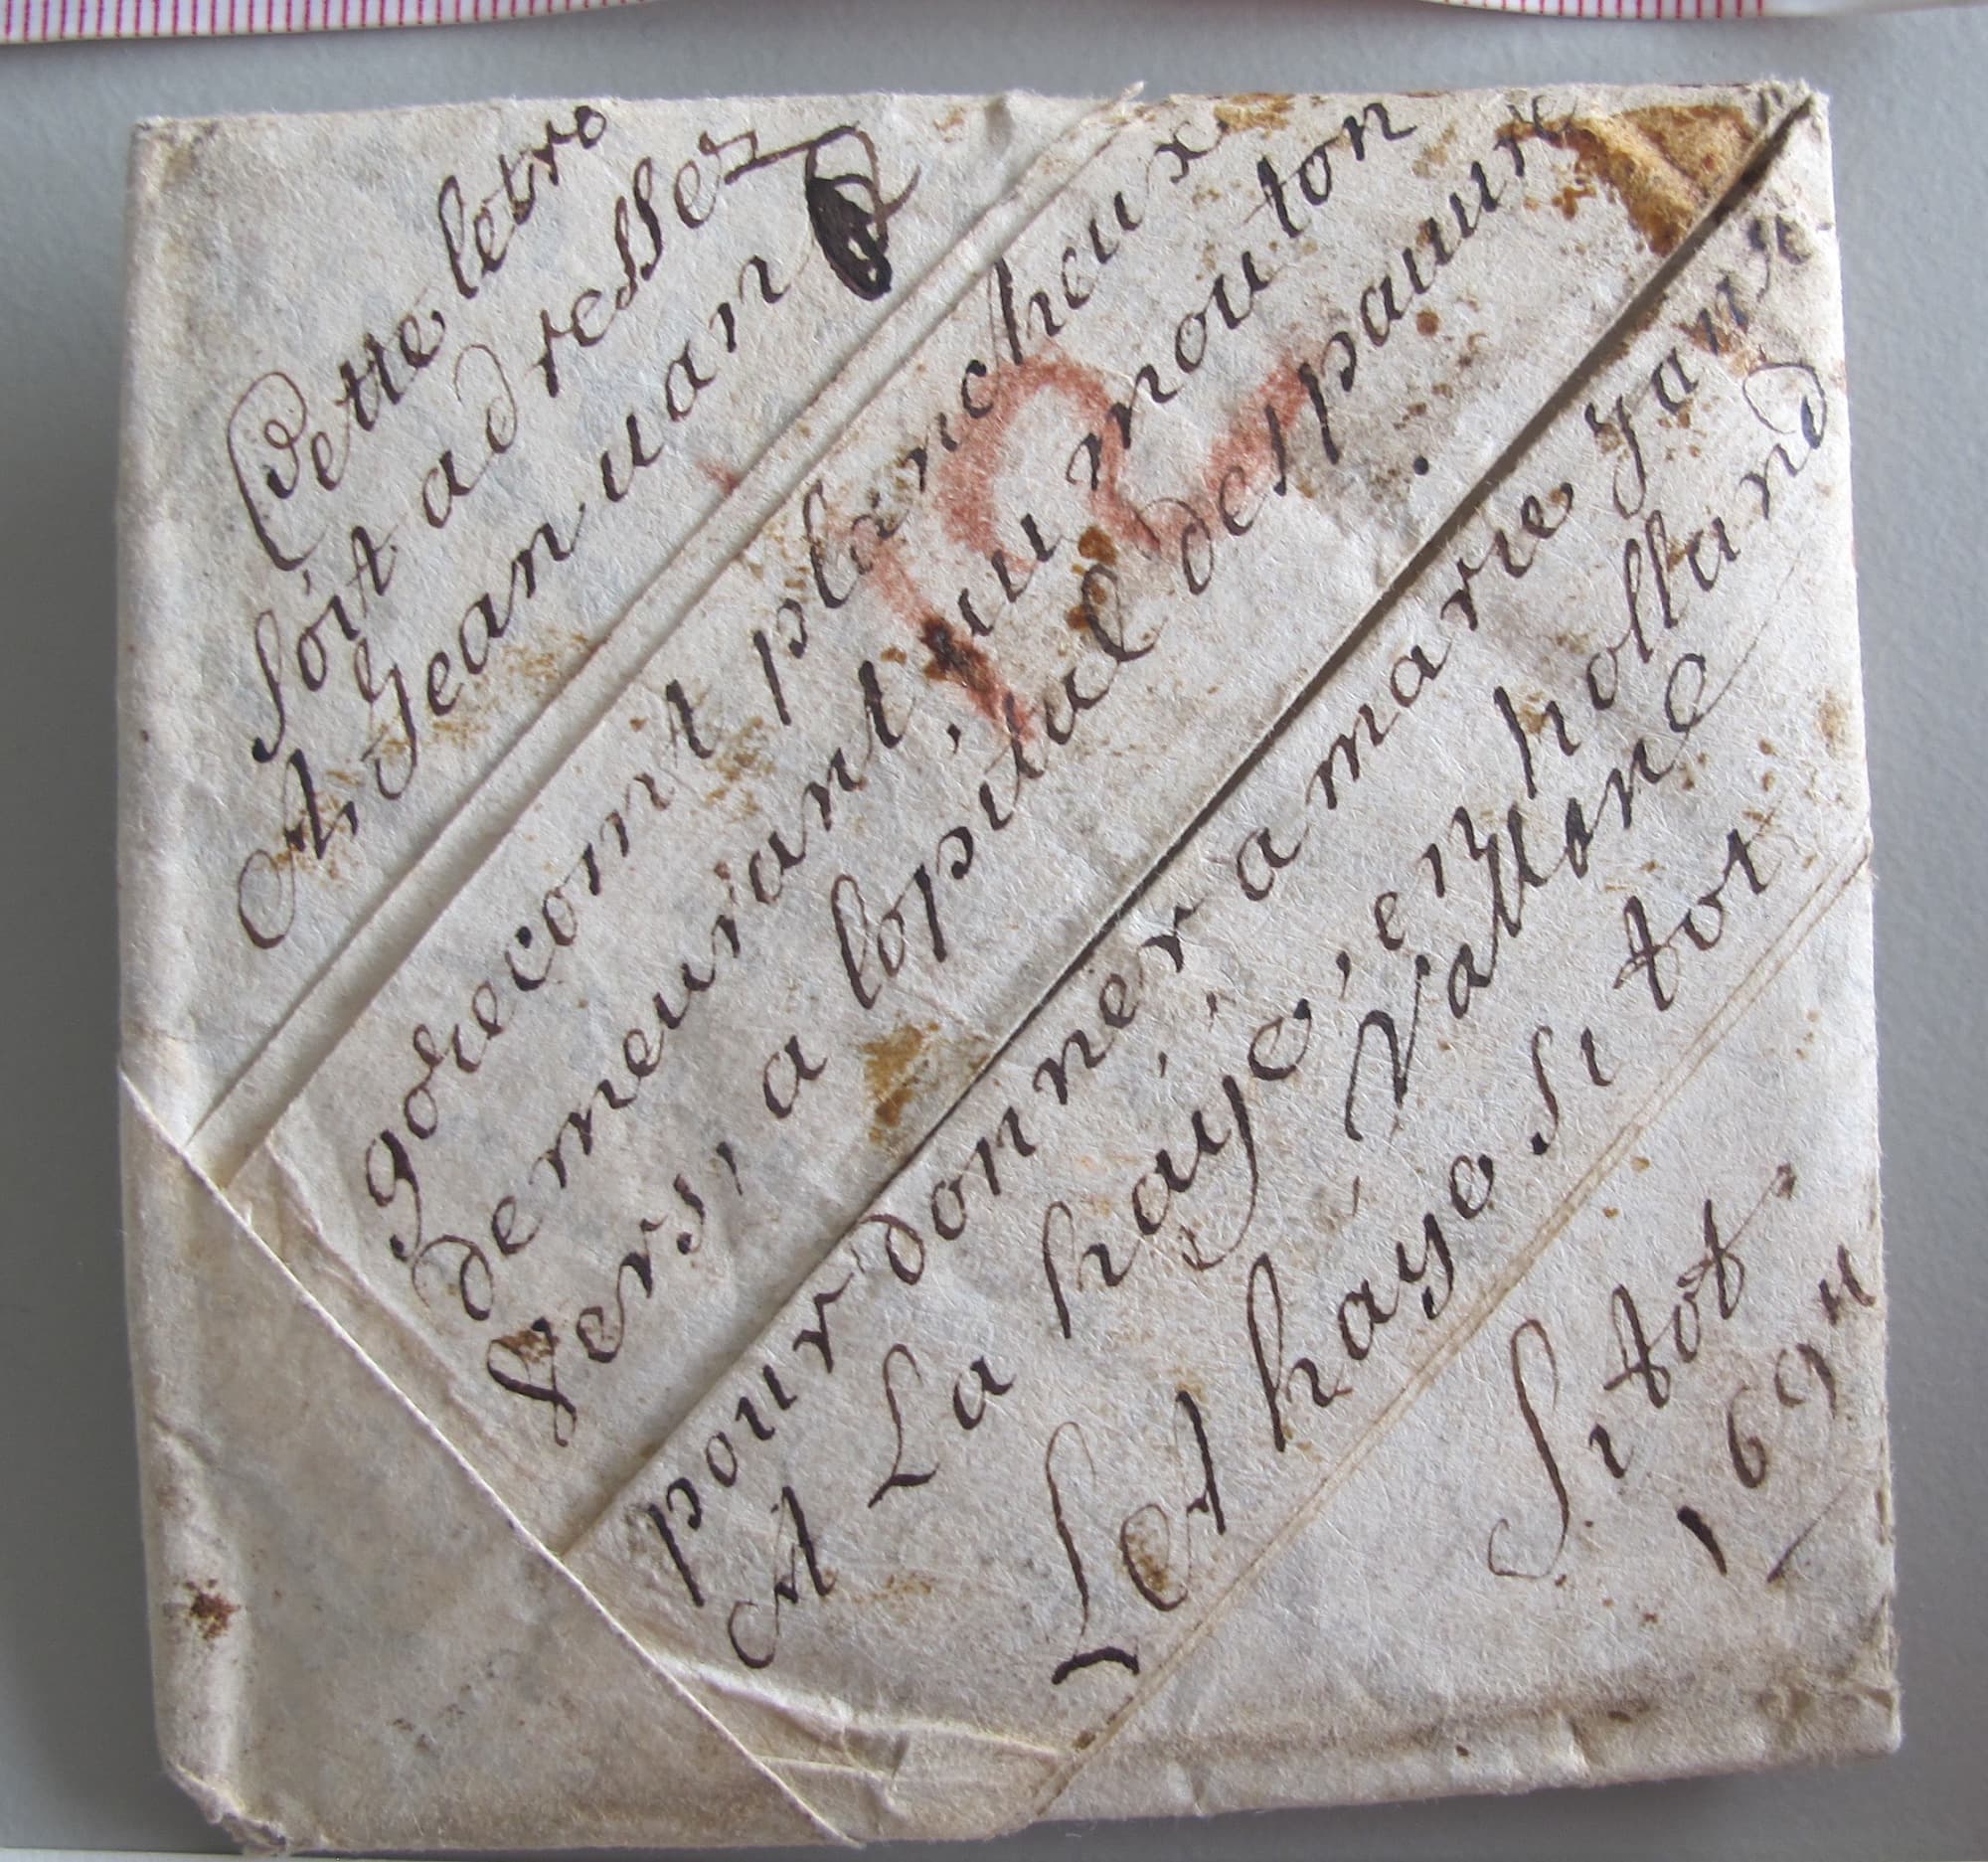 Cette letre
soit adresser
A Jean uan
godecont plancheux
demeurant, au mouton
vers, a lopital des pauure
pour donner a marie Jans
A La haye, en holland
Vallone
Let haye si tot
Si tot
169